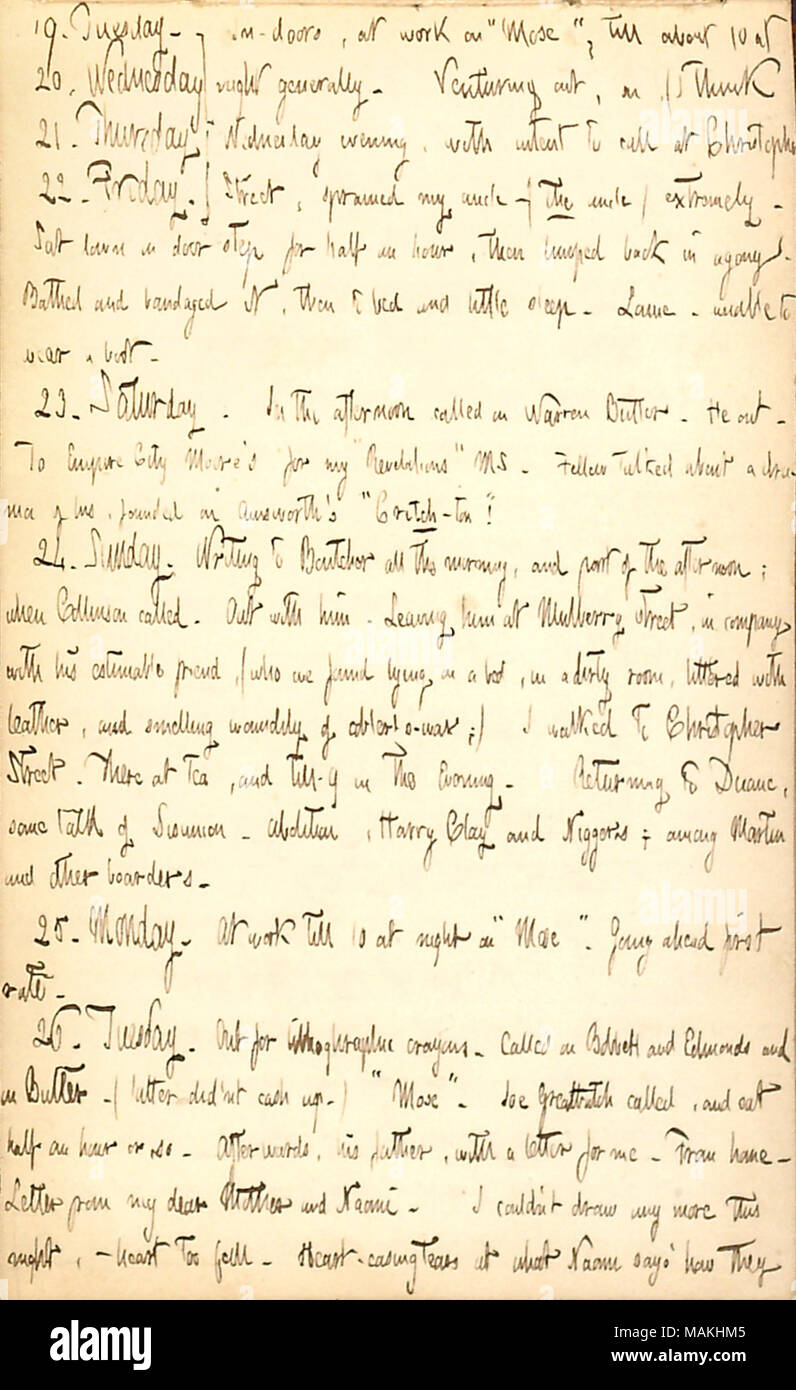 19. Tuesday. } In-doors, at work on "Mose", till about 10 at
20. Wednesday } night generally. Venturing out, on (I think
21. Thursday } Wednesday evening, with intent to call at Christopher
22. Friday. } Street, sprained my ancle (the ancle) extremely.
Sat down on door step for half an hour, then limped back in agony.
Bathed and bandaged it, then to bed and little sleep. Lame. unable to
wear a boot.
23. Saturday. In the afternoon called on Warren Butler. He out.
To Empire City Moore's for my "Revelations" MS. Fellow talked about a dra-
ma of his, founded on Ainsworth's "Critch-ton!"
24. Sunday. Writing to Boutcher all the morning, and part of the afternoon;
when Collinson called. Out with him. Leaving him at Mulberry street, in company
with his estimable friend, (who we found lying on a bed, in a dirty room, littered with
leather, and smelling woundily of cobler's-wax;) I walked to Christopher
Street. There at Tea, and till 9 in the Evening. Returning to Duane,
some talk of Disunion. Abolition, Harry Clay and Niggers; among Martin
and other boarders.
25. Monday. At work till 10 at night on "Mose". Going ahead first
rate.
26. Tuesday. Out for lithographic crayons. Called on Bobbett and Edmonds and
on Butler. (latter didn't cash up.) "Mose". Joe Greatbatch called, and sat
half an hour or so. Afterwards, his father, with a letter for me. From home.
Letter from my dear Mother and Naomi. I couldn't draw any more this
night, - heart too full. Heart-easing tears at what Naomi says how they
alamy
Image ID: MAKHM5
www.alamy.com